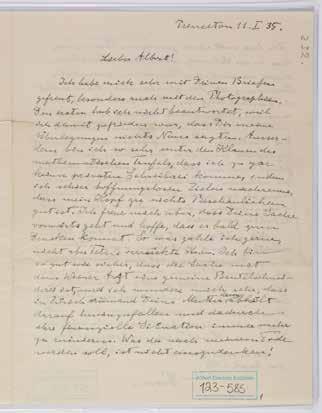 Princeton 11. I 35.
232.
Lieber Albert!
Ich habe mich sehr mit Deinen Briefen
gefreut, besonders auch mit den Photographien.
Den ersten hab ich nicht beantwortet, weil
ich damit zufrieden war, dass Dir meine
Überlegungen nichts Neues sagten. Ausser-
dem bin ich so sehr unter den Klauen des
mathematischen Teufels, dass ich zu gar
keinem privaten Schreiben komme, indem
ich schier hoffnungslosen Zielen nachrenne,
dass mein Kopf zu nichts Persönlichem
gut ist. Ich freue mich aber, dass Deine Sache
vorwärts geht und hoffe, dass es bald zum
Drucken kommt. So was zahle ich gerne,
nicht aber
so gut wie sicher, dass die Leute mit
dem Wiener Arzt eine gemeine
ist, und ich wundere mich sehr, dass
in Zürich niemand Deine Mutter
darauf hineingefallen und dadurch
ihre finanzielle Situation immer mehr
zu ruinieren. Was da nach meinem Tode
werden soll, ist nicht auszudenken!
Albert Einstein Archives
123-585